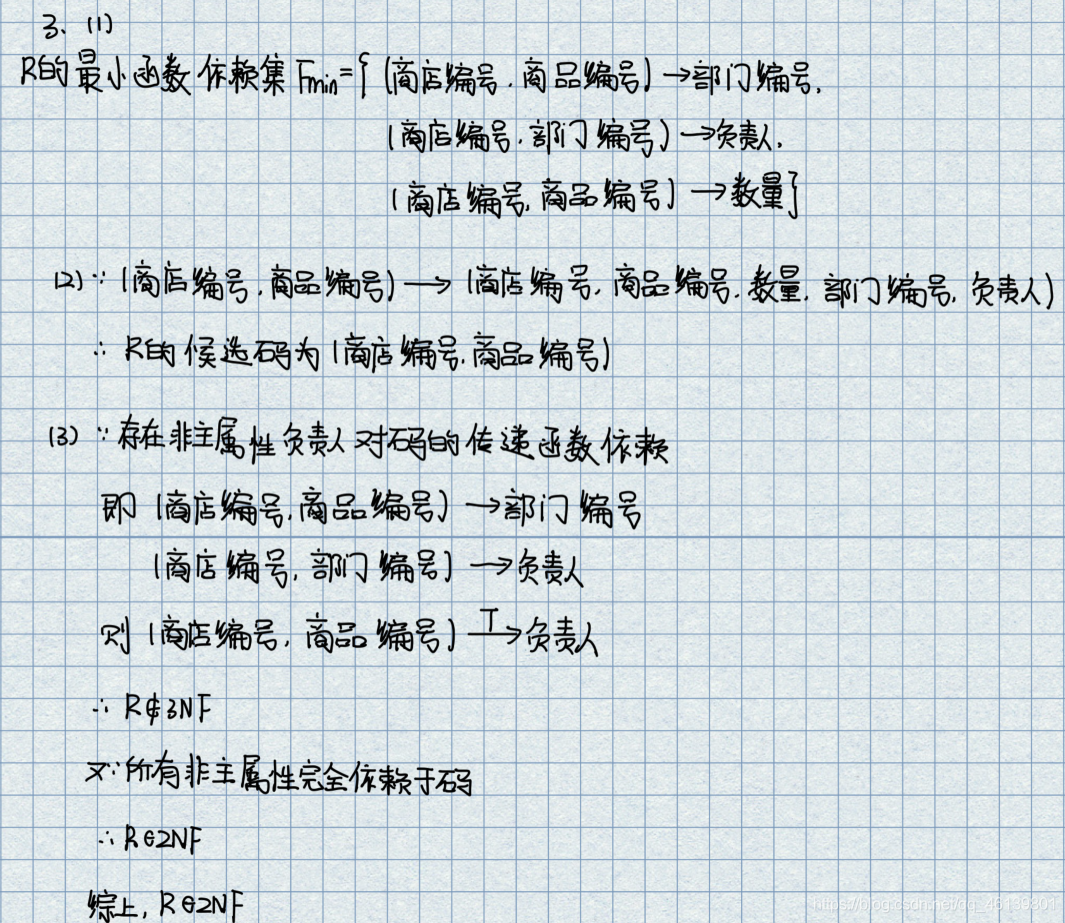 3、(1)
R的最小函数依赖集 Fmin={ (商店编号,商品编号)→部门编号,
(商店编号,部门编号)→负责人,
(商店编号,商品编号)→数量}
(2)∵(商店编号,商品编号)→(商店编号,商品编号,数量,部门编号,负责人)
∴R的候选码为(商店编号,商品编号)
(3)∵存在非主属性负责人对码的传递函数依赖
即(商店编号,商品编号)→部门编号
(商店编号,部门编号)→负责人
则(商店编号,商品编号)T→负责人
∴R∉3NF
又∵所有非主属性完全依赖于码
∴R∈2NF
综上,R∈2NF
https://blog.csdn.net/qq_46139801